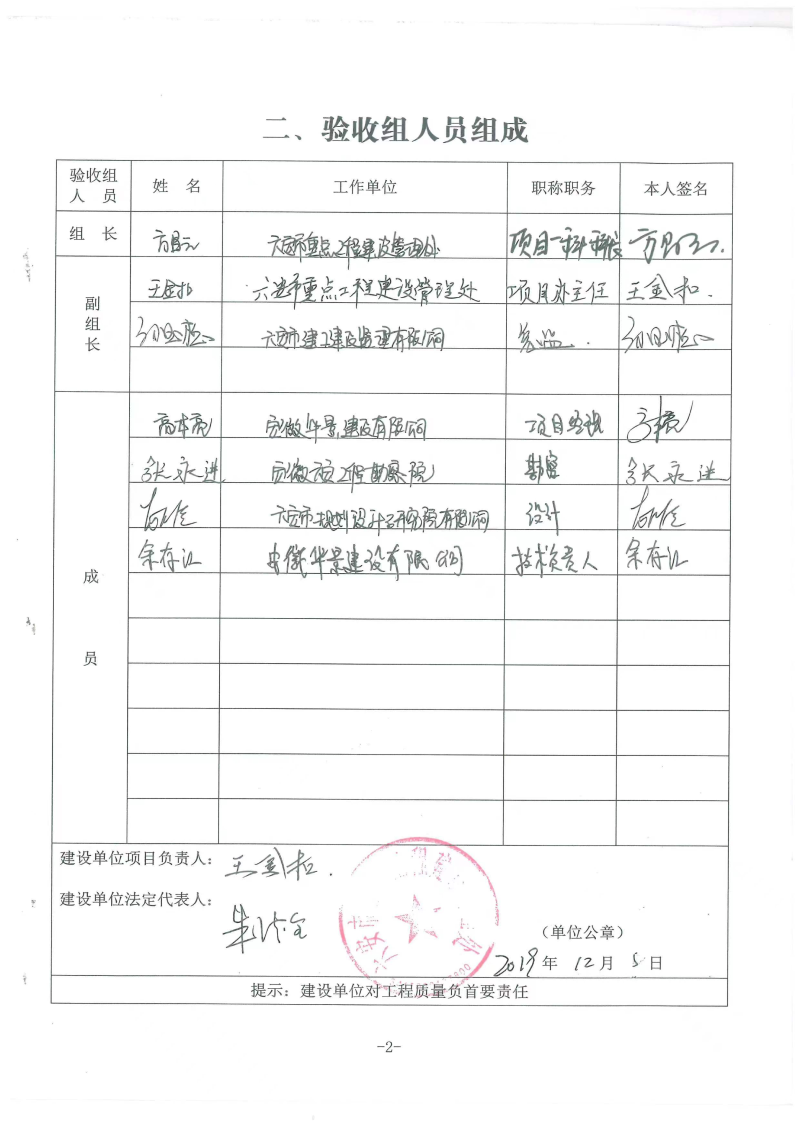 二、验收组人员组成
验收组人员 姓 名 工作单位 职称职务 本人签名
组 长 六安市重点工程建设管理处 项目一科科长
副组长 王金扣 六安市重点工程建设管理处 项目办主任 王金扣.
六安市建工建设监理有限公司 总监.
成 员 高本亮 安徽华景建设有限公司 项目经理
张永进 安徽 工程勘察院 勘察 张永进
六安市规划设计研究院有限公司 设计
余存江 安徽华景建设有限公司 技术负责人 余存江
建设单位项目负责人: 王金扣.
建设单位法定代表人:
六安市 工程建设 处
(单位公章)
2019年 12月 5日
提示: 建设单位对工程质量负首要责任
-2-